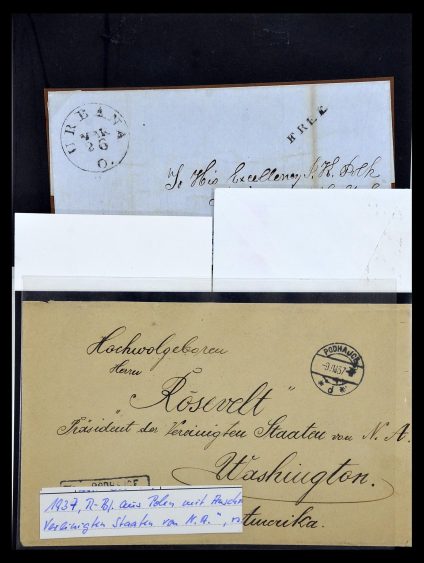 URBANA
MAR
26
O.
FREE
To His Excellency J. K. Polk
Hochwolgeboren
Herrn
PODHAJCE
-9.IV.37
* d *
"Rösevelt"
Präsident der Vereinigten Staaten von N. A.
Washington.
PODHAJCE
1937, R-Bf. aus Polen mit Anschr
Vereinigten Staaten von N.A.",
Amerika.